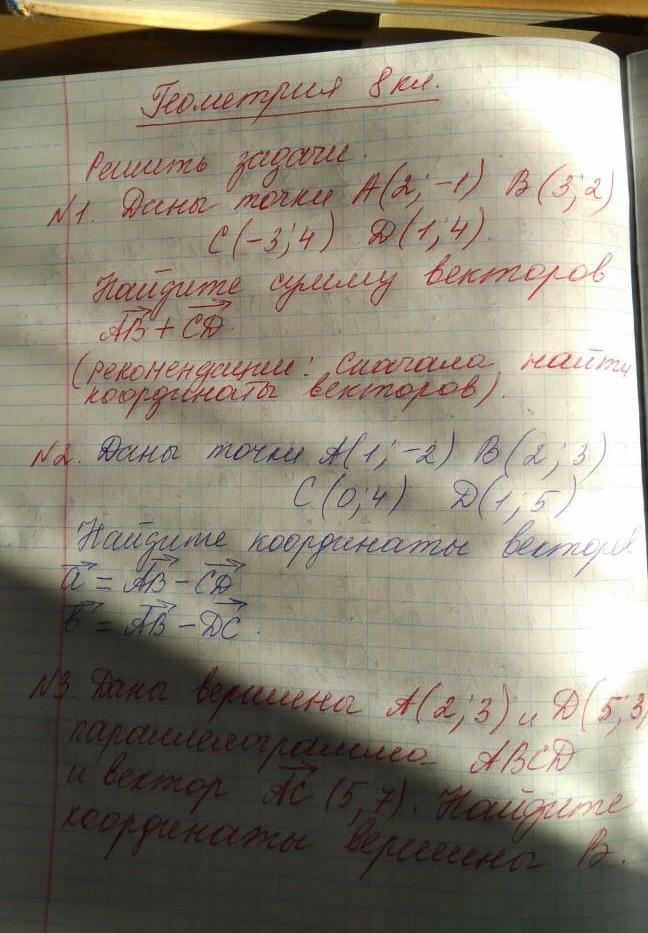 Геометрия 8 кл.
Решить задачи.
№1. Даны точки A(2; -1) B(3; 2)
C(-3; 4) D(1; 4).
Найдите сумму векторов
AB + CD.
(рекомендации: сначала найти
координаты векторов).
№2. Даны точки A(1; -2) B(2; 3)
C(0; 4) D(1; 5)
Найдите координаты векторов
a = AB - CD
b = AB - DC.
№3. Даны вершины A(2; 3) и D(5; 3)
параллелограмма ABCD
и вектор AC (5, 7). Найдите
координаты вершины B.